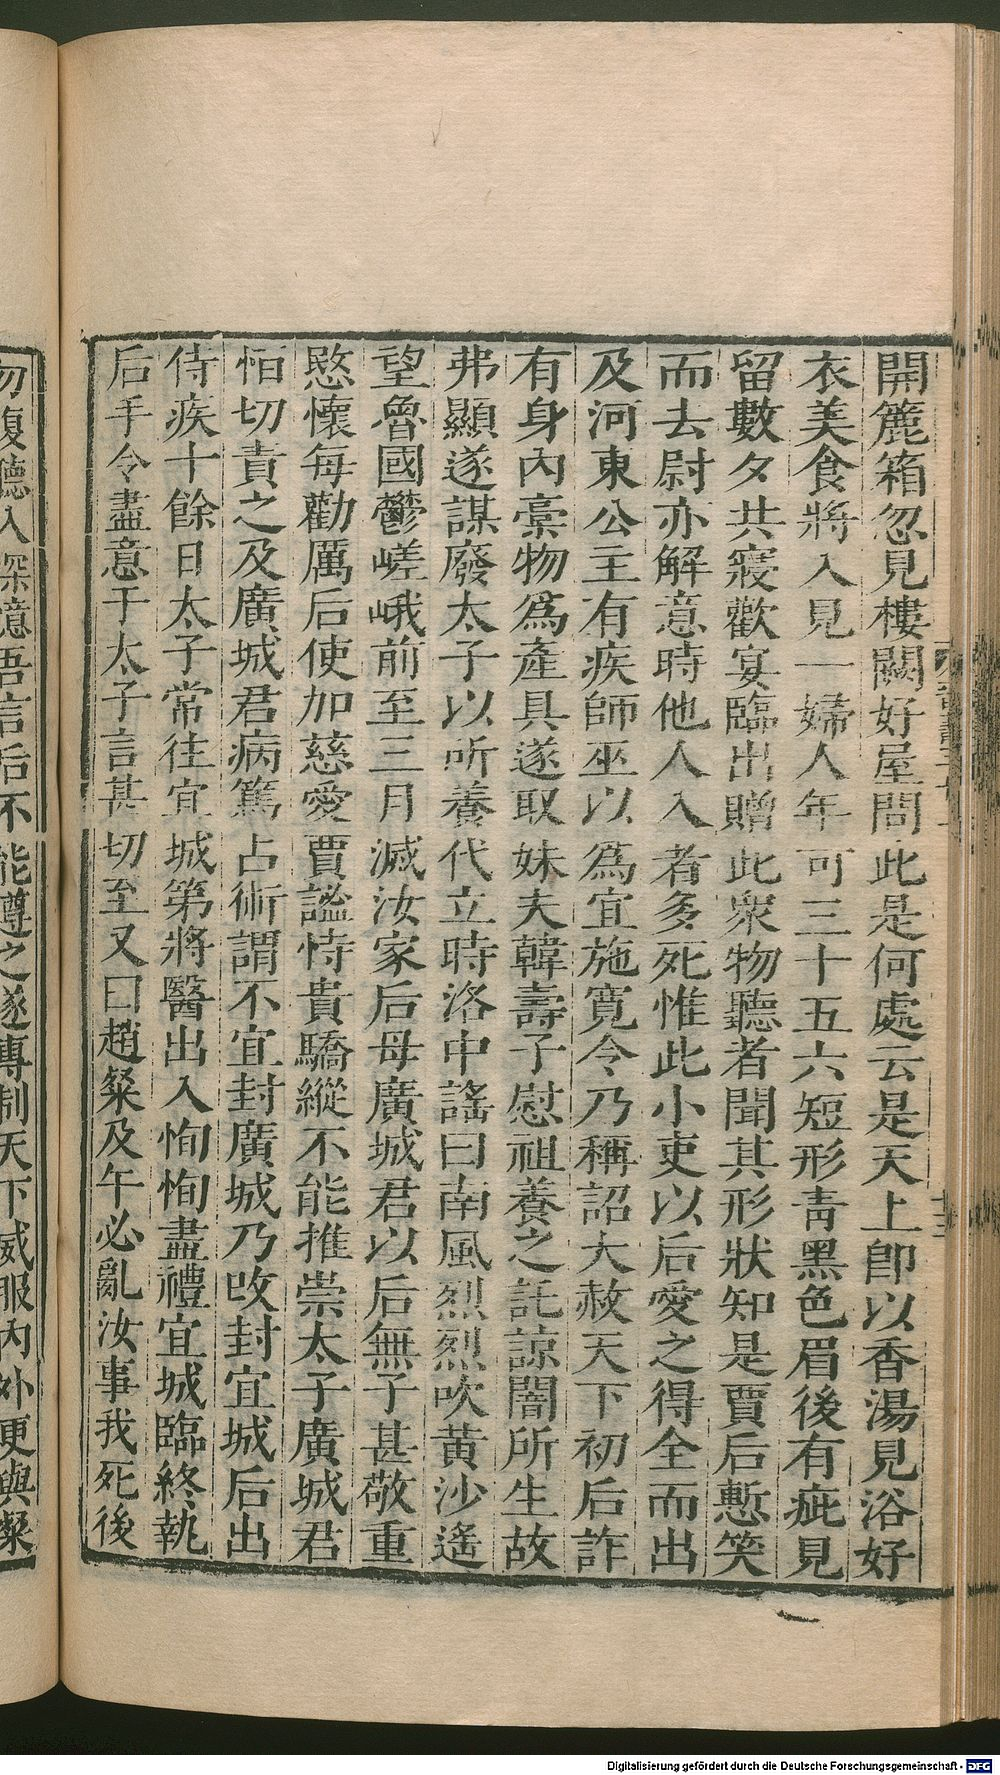 開簏箱忽見樓闕好屋問此是何處云是天上卽以香湯見浴好
衣美食將入見一婦人年可三十五六短形靑黑色眉後有疵見
留數夕共寢歡宴臨出贈此衆物聽者聞其形狀知是賈后慙笑
而去尉亦解意時他人入者多死惟此小吏以后愛之得全而出
及河東公主有疾師巫以爲宜施寬令乃稱詔大赦天下初后詐
有身內稾物爲產具遂取妹夫韓壽子慰祖養之託諒闇所生故
弗顯遂謀廢太子以所養代立時洛中謠曰南風烈烈吹黃沙遙
望魯國鬱嵯峨前至三月滅汝家后母廣城君以后無子甚敬重
愍懷每勸厲后使加慈愛賈謐恃貴驕縱不能推崇太子廣城君
恒切責之及廣城君病篤占術謂不宜封廣城乃改封宜城后出
侍疾十餘日太子常往宜城第將醫出入恂恂盡禮宜城臨終執
后手令盡意于太子言甚切至又曰趙粲及午必亂汝事我死後
勿復聽入深憶吾言后不能遵之遂專制天下威服內外更與粲
Digitalisierung gefördert durch die Deutsche Forschungsgemeinschaft - DFG